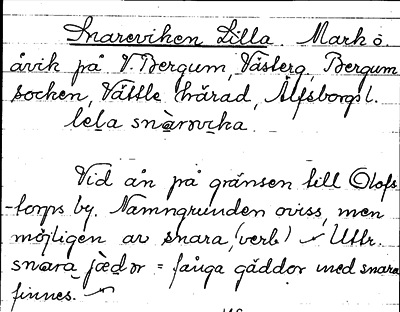 Snareviken Lilla. Mark ö.
åvik på V Bergum, Västerg, Bergum
socken, Vättle härad, Älfsborgs l.
lela snàrəvika
Vid ån på gränsen till Olofs
-torps by. Namngrunden oviss, men
möjligen av snara, (verb) Uttr.
snara jädər = fånga gäddor med snara
finnes.